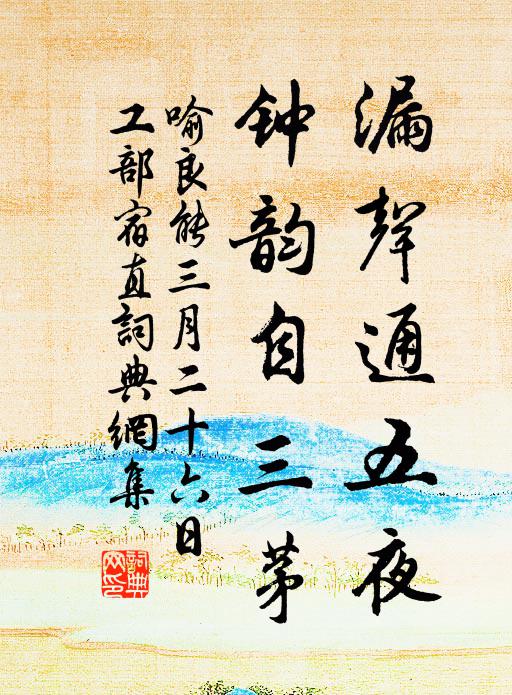 漏聲通五夜
钟韵自三茅
喻良能三月二十六日
工部宿直詞典網集
詞典网印